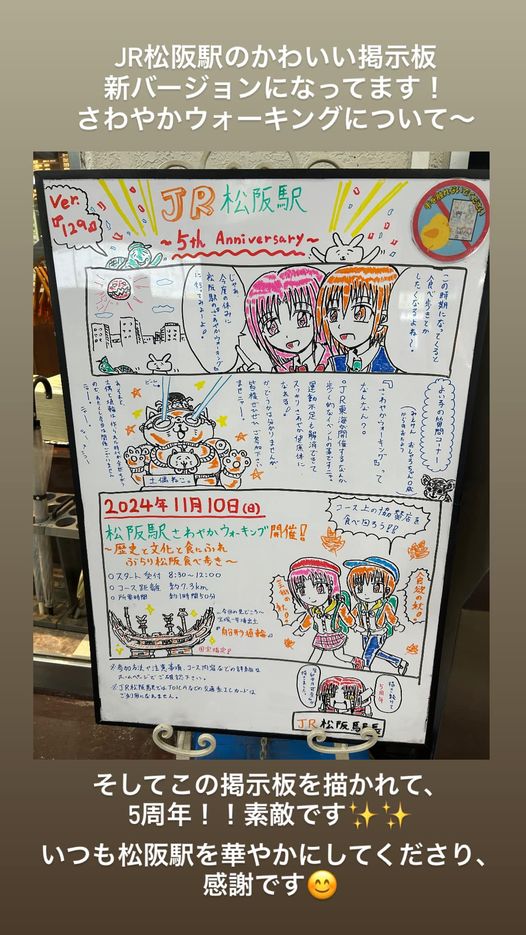 JR松阪駅のかわいい掲示板
新バージョンになってます！
さわやかウォーキングについて〜
Ver.
『129』
JR松阪駅
〜5th Anniversary〜
この時期になってくると
食べ歩きとか
したくなるよね！
じゃあ
今度の休みに
松阪駅のさわやかウォーキングに
行ってみようよ！
よい子の質問コーナー
『さわやかウォーキング』って
なんなん？？
JR東海が開催するなんか
歩く的なイベントの事ですニャ。
運動不足も解消できて
スッキリさわやか健康体に
なれる！
かどうかは分かりませんが
ませニャー！
土偶ねこ。
2024年11月10日(日)
松阪駅さわやかウォーキング開催！
〜歴史と文化と食にふれ
ぶらり松阪食べ歩き〜
○スタート受付 8:30〜12:00
○コース距離 約7.3km
○所要時間 約1時間50分
コース上の協賛店を
食べ回ろう!!
食欲の秋!!
今回の見どころ〜
宝塚一号墳出土
『船形埴輪』
国宝指定！
※参加方法や注意事項、コース内容などの詳細は
ホームページでご確認下さい。
※JR松阪駅ではTOICAなどの交通系ICカードは
ご利用になれません。
5周年
JR松阪駅長
そしてこの掲示板を描かれて、
5周年！！素敵です✨✨
いつも松阪駅を華やかにしてくださり、
感謝です😊